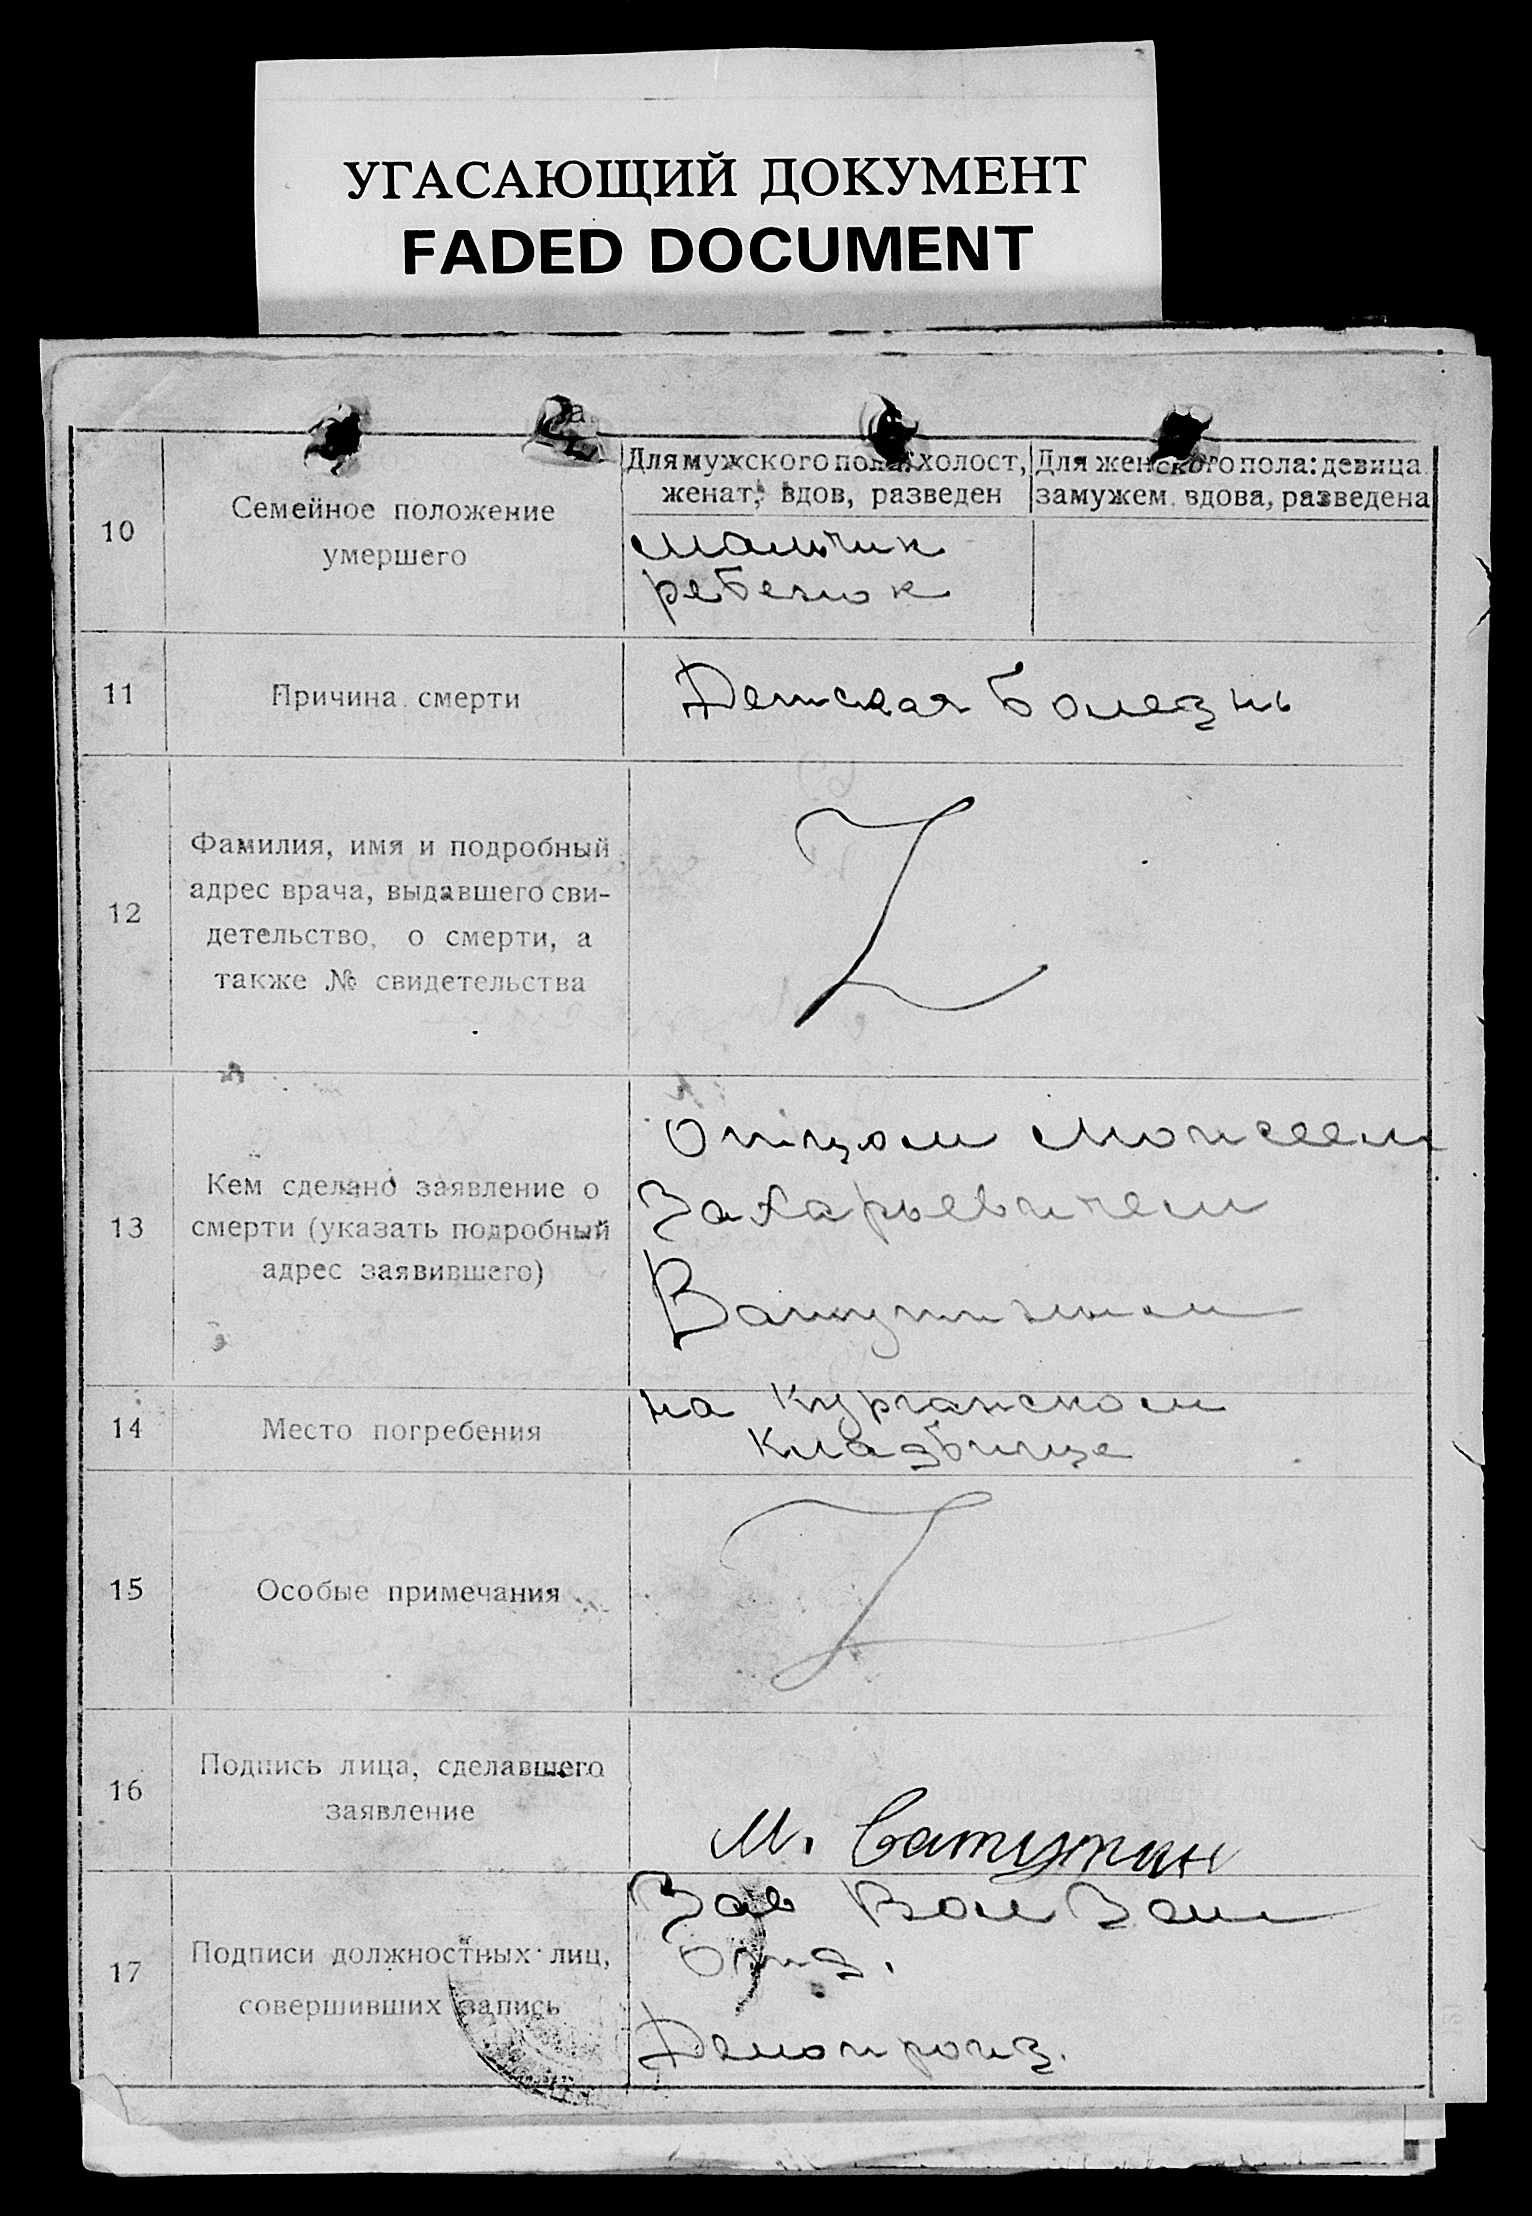 УГАСАЮЩИЙ ДОКУМЕНТ
FADED DOCUMENT
10
Семейное положение
умершего
Для мужского пола: холост,
женат, вдов, разведен
Для женского пола: девица
замужем, вдова, разведена
мальчик
ребенок
11
Причина смерти
Детская болезнь
12
Фамилия, имя и подробный
адрес врача, выдавшего сви-
детельство, о смерти, а
также № свидетельства
13
Кем сделано заявление о
смерти (указать подробный
адрес заявившего)
Отцом Моисеем
Захарьевичем
Ватутиным
14
Место погребения
на Курганском
Кладбище
15
Особые примечания
16
Подпись лица, сделавшего
заявление
М. Ватутин
17
Подписи должностных лиц,
совершивших запись
Зав Вол Зем
Отд.
Делопроиз.